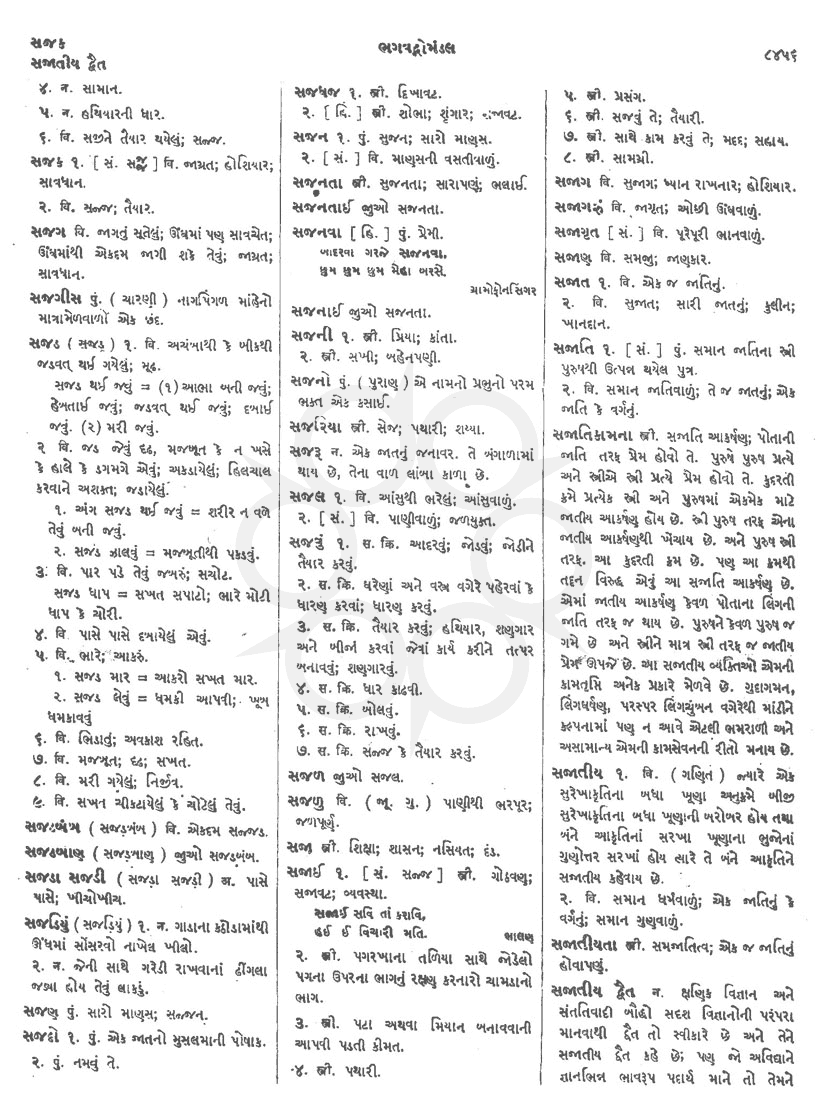 સજક
સજાતીય દ્વૈત
ભગવદ્ગોમંડલ
૮૪૫૬
૪. ન. સામાન.
૫. ન. હથિયારની ધાર.
૬. વિ. સજીને તૈયાર થયેલું; સન્જ.
સજક ૧. [ સં. સજ્જ ] વિ. જાગ્રત; હોશિયાર;
સાવધાન.
૨. વિ. સન્જ; તૈયાર.
સજગ વિ. જાગતું સૂતેલું; ઊંઘમાં પણ સાવચેત;
ઊંઘમાંથી એકદમ જાગી શકે તેવું; જાગ્રત;
સાવધાન.
સજગીસ પું. ( ચારણી ) નાગપિંગળ માંહેનો
માત્રામેળવાળો એક છંદ.
સજડ ( સજડ઼ ) ૧. વિ. અચંબાથી કે બીકથી
જડવત્ થઈ ગયેલું; મૂઢ.
સજડ થઈ જવું = (૧) આભા બની જવું;
હેબતાઈ જવું; જડવત્ થઈ જવું; દબાઈ
જવું. (૨) મરી જવું.
૨ વિ. જડ જેવું દૃઢ, મજબૂત કે ન ખસે
કે હાલે કે ડગમગે એવું; અકડાયેલું; હિલચાલ
કરવાને અશક્ત; જડાયેલું.
૧. અંગ સજડ થઈ જવું = શરીર ન વળે
તેવું બની જવું.
૨. સજડ ઝાલવું = મજબૂતીથી પકડવું.
૩. વિ. પાર પડે તેવું જબરું; સચોટ.
સજડ ધાપ = સખત સપાટો; ભારે મોટી
ધાપ કે ચોરી.
૪. વિ. પાસે પાસે દબાયેલું એવું.
૫. વિ. ભારે; આકરું.
૧. સજડ માર = આકરો સખત માર.
૨. સજડ લેવું = ધમકી આપવી; ખૂબ
ધમકાવવું
૬. વિ. ભિડાતું; અવકાશ રહિત.
૭. વિ. મજબૂત; દૃઢ; સખત.
૮. વિ. મરી ગયેલું; નિર્જીવ.
૯. વિ. સખત ચીકટાયેલું કે ચોટેલું તેવું.
સજડબંબ ( સજડ઼બંબ ) વિ. એકદમ સન્જડ.
સજડબાણ ( સજડ઼બાણ ) જુઓ સજડબંબ.
સજડા સજડી ( સજડ઼ા સજડ઼ી ) અ. પાસે
પાસે; ખીચોખીચ.
સજડિયું ( સજડ઼િયું ) ૧. ન. ગાડાના કઠોડામાંથી
ઊંધમાં સોંસરવો નાખેલ ખીલો.
૨. ન. જેની સાથે ગરેડી રાખવાનાં ઢીંગલા
જડ્યા હોય તેવું લાકડું.
સજણ પું. સારો માણસ; સન્જન.
સજદો ૧. પું. એક જાતનો મુસલમાની પોષાક.
૨. પું. નમવું તે.
સજધજ ૧. સ્ત્રી. દિખાવટ.
૨. [ હિં. ] સ્ત્રી. શોભા; શૃંગાર; સજાવટ.
સજન ૧. પું. સુજન; સારો માણસ.
૨. [ સં. ] વિ. માણસની વસતીવાળું.
સજનતા સ્ત્રી. સુજનતા; સારાપણું; ભલાઈ.
સજનતાઈ જુઓ સજનતા.
સજનવા [ હિ. ] પું. પ્રેમી.
બાદરવા ગરજે સજનવા,
ઘુમ ઘુમ ઘુમ મેહા બરસે.
ગ્રામોફોનસિંગર
સજનાઈ જુઓ સજનતા.
સજની ૧. સ્ત્રી. પ્રિયા; કાંતા.
૨. સ્ત્રી. સખી; બહેનપણી.
સજનો પું. ( પુરાણ ) એ નામનો પ્રભુનો પરમ
ભક્ત એક કસાઈ.
સજરિયા સ્ત્રી. સેજ; પથારી; શય્યા.
સજરૂ ન. એક જાતનું જનાવર. તે બંગાળામાં
થાય છે, તેના વાળ લાંબા કાળા છે.
સજલ ૧. વિ. આંસુથી ભરેલું; આંસુવાળું.
૨. [ સં. ] વિ. પાણીવાળું; જળયુક્ત.
સજવું ૧. સ. ક્રિ. આદરવું; જોડવું; જોડીને
તૈયાર કરવું.
૨. સ. ક્રિ. ઘરેણાં અને વસ્ત્ર વગેરે પહેરવાં કે
ધારણ કરવાં; ધારણ કરવું.
૩. સ. ક્રિ. તૈયાર કરવું; હથિયાર, શણગાર
અને બીજાં કરવાં જેવાં કાર્ય કરીને તત્પર
બનાવવું; શણગારવું.
૪. સ. ક્રિ. ધાર કાઢવી.
૫. સ. ક્રિ. બોલવું.
૬. સ. ક્રિ. રાખવું.
૭. સ. ક્રિ. સન્જ કે તૈયાર કરવું.
સજળ જુઓ સજલ.
સજળુ વિ. ( જૂ. ગુ. ) પાણીથી ભરપૂર;
જળપૂર્ણ.
સજા સ્ત્રી. શિક્ષા; શાસન; નસિયત; દંડ.
સજાઈ ૧. [ સં. સન્જ ] સ્ત્રી. ગોઠવણ;
સજાવટ; વ્યવસ્થા.
સજાઈ સવિ તાં કરાવિ,
હઈ ઈ વિચારી મતિ.
ભાલણ
૨. સ્ત્રી. પગરખાના તળિયા સાથે જોડેલો
પગના ઉપરના ભાગનું રક્ષણ કરનારો ચામડાનો
ભાગ.
૩. સ્ત્રી. પટા અથવા મિયાન બનાવવાની
આપવી પડતી કીમત.
૪. સ્ત્રી. પથારી.
૫. સ્ત્રી. પ્રસંગ.
૬. સ્ત્રી. સજવું તે; તૈયારી.
૭. સ્ત્રી. સાથે કામ કરવું તે; મદદ; સહાય.
૮. સ્ત્રી. સામગ્રી.
સજાગ વિ. સુજાગ; ધ્યાન રાખનાર; હોશિયાર.
સજાગરું વિ. જાગૃત; ઓછી ઊંઘવાળું.
સજાગૃત [ સં. ] વિ. પૂરેપૂરી ભાનવાળું.
સજાણ વિ. સમજુ; જાણકાર.
સજાત ૧. વિ. એક જ જાતિનું.
૨. વિ. સુજાત; સારી જાતનું; કુલીન;
ખાનદાન.
સજાતિ ૧. [ સં. ] પું. સમાન જાતિના સ્ત્રી
પુરુષથી ઉત્પન્ન થયેલ પુત્ર.
૨. વિ. સમાન જાતિવાળું; તે જ જાતનું; એક
જાતિ કે વર્ગનું.
સજાતિકામના સ્ત્રી. સજાતિ આકર્ષણ; પોતાની
જાતિ તરફ પ્રેમ હોવો તે. પુરુષે પુરુષ પ્રત્યે
અને સ્ત્રીએ સ્ત્રી પ્રત્યે પ્રેમ હોવો તે. કુદરતી
ક્રમે પ્રત્યેક સ્ત્રી અને પુરુષમાં એકમેક માટે
જાતીય આકર્ષણ હોય છે. સ્ત્રી પુરુષ તરફ એના
જાતીય આકર્ષણથી ખેંચાય છે. અને પુરુષ સ્ત્રી
તરફ. આ કુદરતી ક્રમ છે. પણ આ ક્રમથી
તદ્દન વિરુદ્ધ એવું આ સજાતિ આકર્ષણ છે.
એમાં જાતીય આકર્ષણ કેવળ પોતાના લિંગની
જાતિ તરફ જ થાય છે. પુરુષને કેવળ પુરુષ જ
ગમે છે અને સ્ત્રીને માત્ર સ્ત્રી તરફ જ જાતીય
પ્રેમ ઊપજે છે. આ સજાતીય વ્યક્તિઓ એમની
કામતૃપ્તિ અનેક પ્રકારે મેળવે છે. ગુદાગમન,
લિંગઘર્ષણ, પરસ્પર લિંગચુંબન વગેરેથી માંડીને
કલ્પનામાં પણ ન આવે એટલી ભમરાળી અને
અસામાન્ય એમની કામસેવનની રીતો મનાય છે.
સજાતીય ૧. વિ. ( ગણિત ) જ્યારે એક
સુરેખાકૃતિના બધા ખૂણા અનુક્રમે બીજી
સુરેખાકૃતિના બધા ખૂણાની બરોબર હોય તથા
બંને આકૃતિનાં સરખા ખૂણાના ભુજોનાં
ગુણોત્તર સરખાં હોય ત્યારે તે બંને આકૃતિને
સજાતીય કહેવાય છે.
૨. વિ. સમાન ધર્મવાળું; એક જાતિનું કે
વર્ગનું; સમાન ગુણવાળું.
સજાતીયતા સ્ત્રી. સમજાતિત્વ; એક જ જાતિનું
હોવાપણું.
સજાતીય દ્વૈત ન. ક્ષણિક વિજ્ઞાન અને
સંતતિવાદી બૌદ્ધો સદૃશ વિજ્ઞાનોની પરંપરા
માનવાથી દ્વૈત તો સ્વીકારે છે અને તેને
સજાતીય દ્વૈત કહે છે; પણ જો અવિદ્યાને
જ્ઞાનભિન્ન ભાવરૂપ પદાર્થ માને તો તેમને